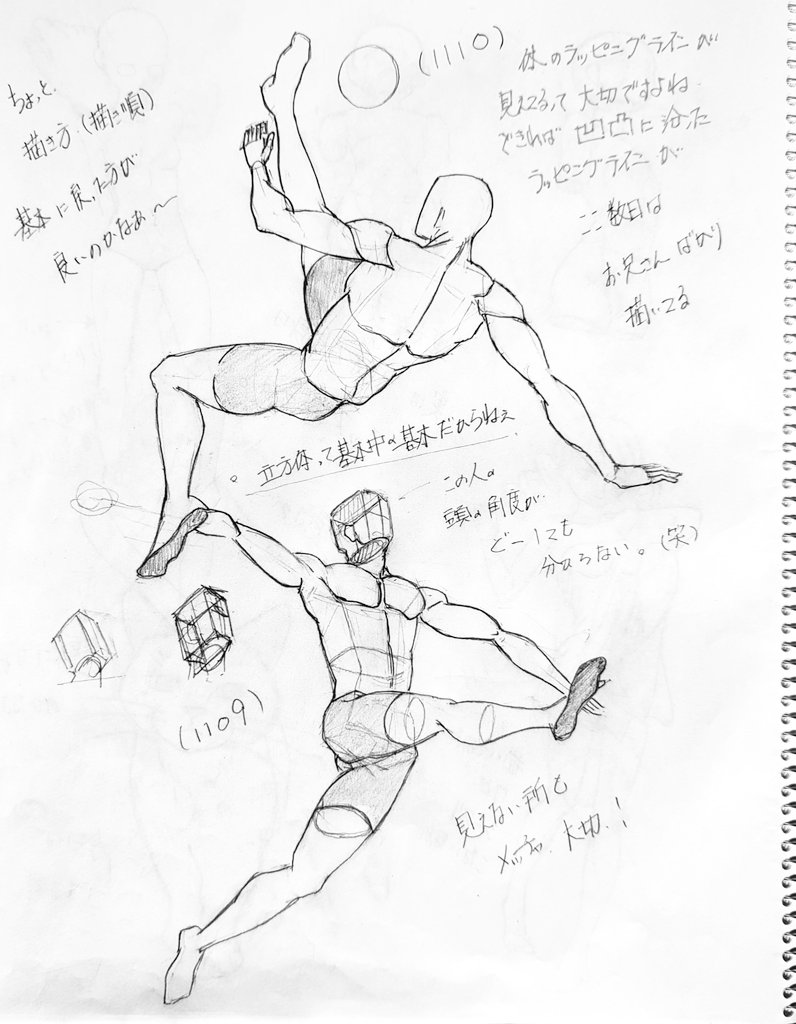 ちょっと
描き方(描き順)
基本に戻った方が
良いのかなぁ〜
(1110)
体のラッピングラインが
見えてるって大切ですよね
できれば凹凸に沿った
ラッピングラインが
ここ数日は
お兄さんばかり
描いてる
立方体って基本中の基本だからねぇ
この人の
頭の角度が
どーしても
分からない。(笑)
(1109)
見えない所も
メッチャ、大切！